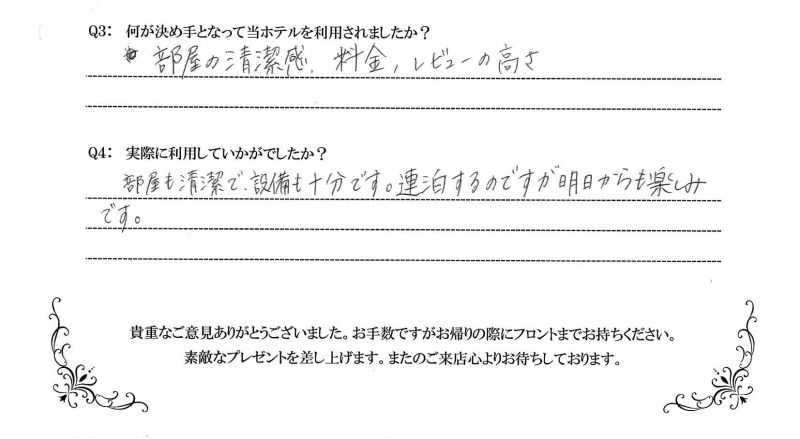 Q3： 何が決め手となって当ホテルを利用されましたか？
部屋の清潔感、料金、レビューの高さ
Q4： 実際に利用していかがでしたか？
部屋も清潔で、設備も十分です。連泊するのですが明日からも楽しみ
です。
貴重なご意見ありがとうございました。お手数ですがお帰りの際にフロントまでお持ちください。
素敵なプレゼントを差し上げます。またのご来店心よりお待ちしております。